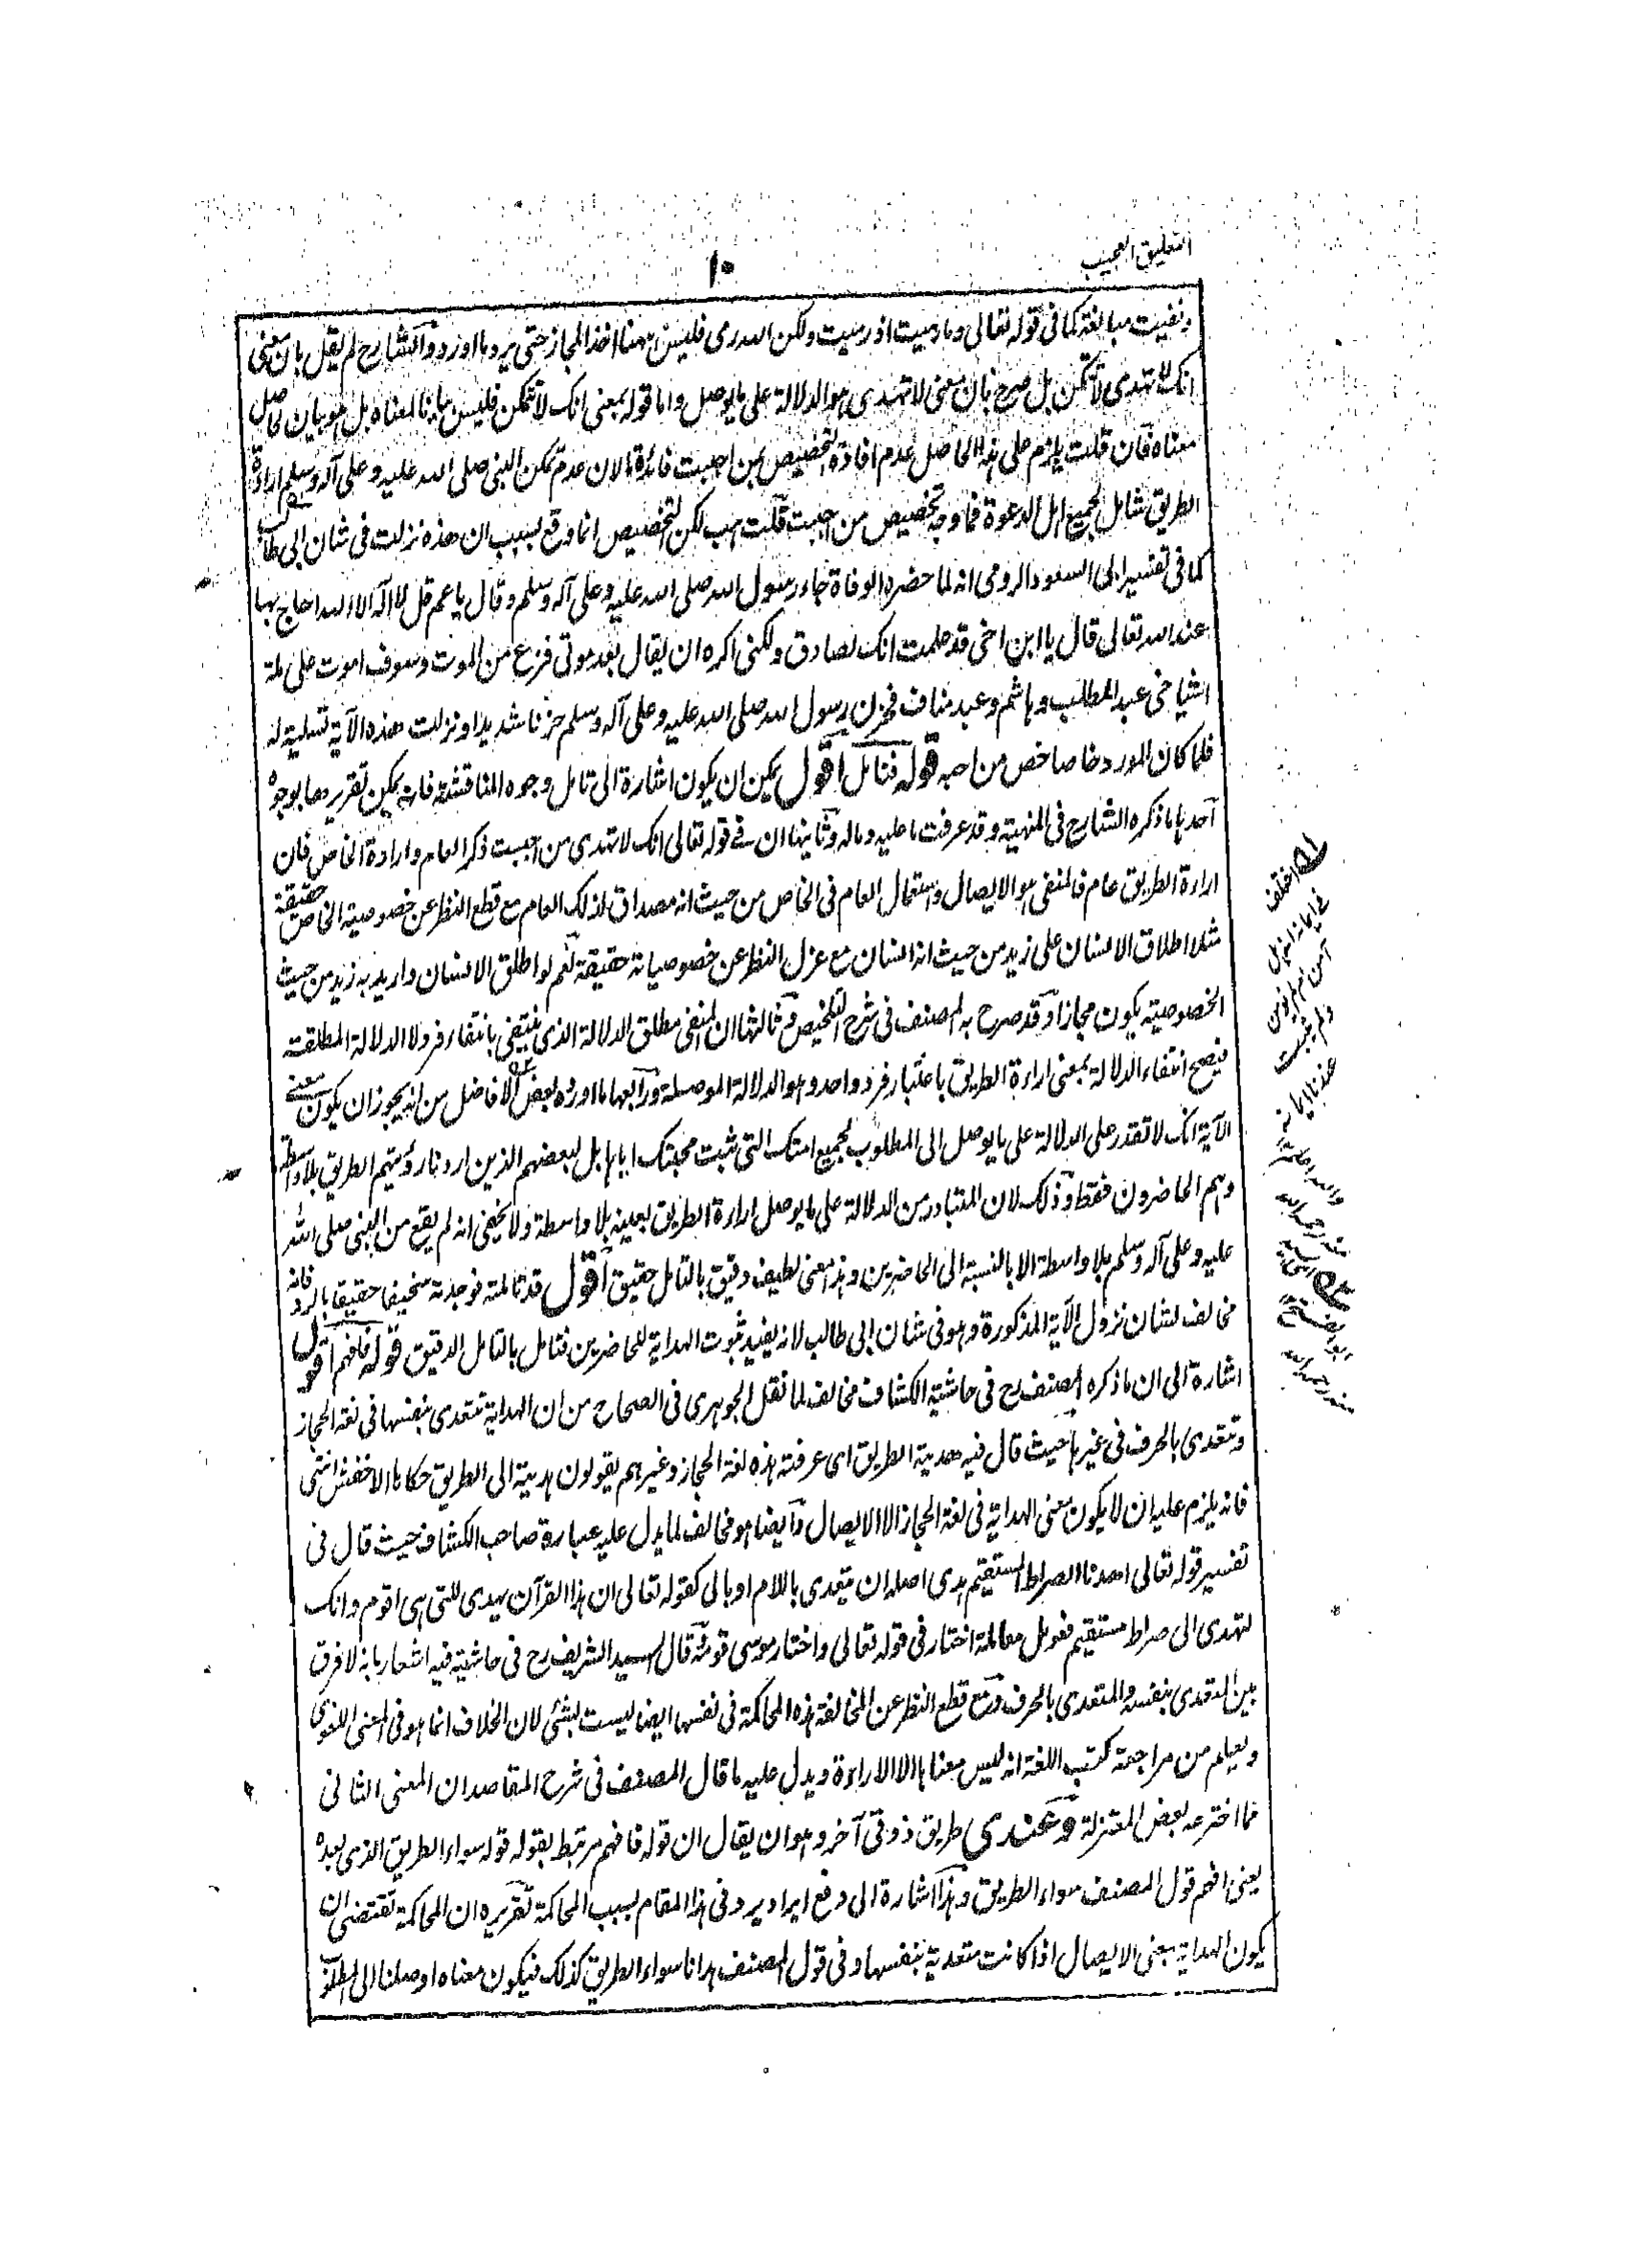 التعليق العجيب
١٠
ونفيت مبالغة كما فى قوله تعالى وما رميت اذ رميت ولكن الله رمى فليس ههنا اخذ المجاز حتى يرد ما اورد والشارح لم يقل بان معنى
انك لا تهدى لا تتمكن بل صرح بان معنى لا تهدى هو الدلالة على ما يوصل واما قوله بمعنى انك لا تتمكن فليس بيانا لمعناه بل هو بيان لحاصل
معناه فان قلت يلزم على هذا الحاصل عدم افادة التخصيص بمن احببت فائدة ما لان عدم تمكن النبى صلى الله عليه وعلى آله وسلم اراءة
الطريق شامل لجميع اهل الدعوة فما وجه تخصيص من احببت قلت هب لكن التخصيص انما وقع بسبب ان هذه نزلت فى شان ابى طالب
كما فى تفسير ابى السعود الرومى انه لما حضره الوفاة جاء رسول الله صلى الله عليه وعلى آله وسلم وقال يا عم قل لا اله الا الله احاج بها
عند الله تعالى قال يا ابن اخى قد علمت انك لصادق ولكنى اكره ان يقال بعد موتى فزع من الموت وسوف اموت على ملة
اشياخى عبد المطلب وهاشم وعبد مناف فحزن رسول الله صلى الله عليه وعلى آله وسلم حزنا شديدا ونزلت هذه الآية تسلية له
فلما كان المورد خاصا خص من احبه قوله فتامل اقول يمكن ان يكون اشارة الى تامل وجوه المناقشة فانه يمكن تقريرها بوجوه
احدها ما ذكره الشارح فى المنهية وقد عرفت ما عليه وماله وثانيها ان فے قوله تعالى انك لا تهدى من احببت ذكر العام وارادة الخاص فان
اراءة الطريق عام فالمنفى هو الايصال واستعمال العام فى الخاص من حيث انه مصداق لذلك العام مع قطع النظر عن خصوصية الخاص حقيقة
مثلا اطلاق الانسان على زيد من حيث انه انسان مع عزل النظر عن خصوصياته حقيقة نعم لو اطلق الانسان واريد به زيد من حيث
الخصوصية يكون مجازا وقد صرح به المصنف فى شرح التلخيص وثالثها ان المنفى مطلق الدلالة الذى ينتفى بانتفاء فرد لا الدلالة المطلقة
فيصح انتفاء الدلالة بمعنى اراءة الطريق باعتبار فرد واحد وهو الدلالة الموصلة ورابعها ما اورده بعض الافاضل من انه يجوز ان يكون معنے
الآية انك لا تقدر على الدلالة على ما يوصل الى المطلوب لجميع امتك التى ثبت محبتك اياها بل لبعضهم الذين اردنا رؤيتهم الطريق بلا واسطة
وهم الحاضرون فقط وذلك لان المتبادر من الدلالة على ما يوصل اراءة الطريق بعينه بلا واسطة ولا يخفى انه لم يقع من النبى صلى الله
عليه وعلى آله وسلم بلا واسطة الا بالنسبة الى الحاضرين وهذا معنى لطيف دقيق بالتامل حقيق اقول قد تاملته فوجدته سخيفا حقيقا بالرد فانه
مخالف لشان نزول الآية المذكورة وهو فى شان ابى طالب لانه يفيد ثبوت الهداية للحاضرين فتامل بالتامل الدقيق قوله فافهم اقول
اشارة الى ان ما ذكره المصنف رح فى حاشية الكشاف مخالف لما نقل الجوهرى فى الصحاح من ان الهداية تتعدى بنفسها فى لغة الحجاز
وتتعدى بالحرف فى غيرها حيث قال فيه هديته الطريق اى عرفته هذه لغة الحجاز وغيرهم يقولون هديته الى الطريق حكاها الاخفش انتهى
فانه يلزم عليه ان لا يكون معنى الهداية فى لغة الحجاز الا الايصال وايضا هو مخالف لما يدل عليه عبارة صاحب الكشاف حيث قال فى
تفسير قوله تعالى اهدنا الصراط المستقيم هدى اصله ان يتعدى باللام او بالى كقوله تعالى ان هذا القرآن يهدى للتى هى اقوم وانك
لتهدى الى صراط مستقيم فعومل معاملة اختار فى قوله تعالى واختار موسى قومه قال السيد الشريف رح فى حاشيته فيه اشعار بانه لا فرق
بين المتعدى بنفسه والمتعدى بالحرف ومع قطع النظر عن المخالفة هذه المحاكمة فى نفسها ايضا ليست بشئ لان الخلاف انما هو فى المعنى اللغوى
ويعلم من مراجعة كتب اللغة انه ليس معناها الا الاراءة ويدل عليه ما قال المصنف فى شرح المقاصد ان المعنى الثانى
مما اخترعه بعض المعتزلة وعندى طريق ذوقى آخر وهو ان يقال ان قوله فافهم مرتبط بقوله قوله سواء الطريق الذى بعده
يعنى افهم قول المصنف سواء الطريق وهذا اشارة الى دفع ايراد يرد فى هذا المقام بسبب المحاكمة تقريره ان المحاكمة تقتضى ان
يكون الهداية بمعنى الايصال اذا كانت متعدية بنفسها وفى قول المصنف هدانا سواء الطريق كذلك فيكون معناه اوصلنا الى المطلوب
اختلف
فے ايمانه
ولم يثبت
عندنا ايمانه
منه رحمه الله
السيد
ابو الفتح
منه رحمه الله